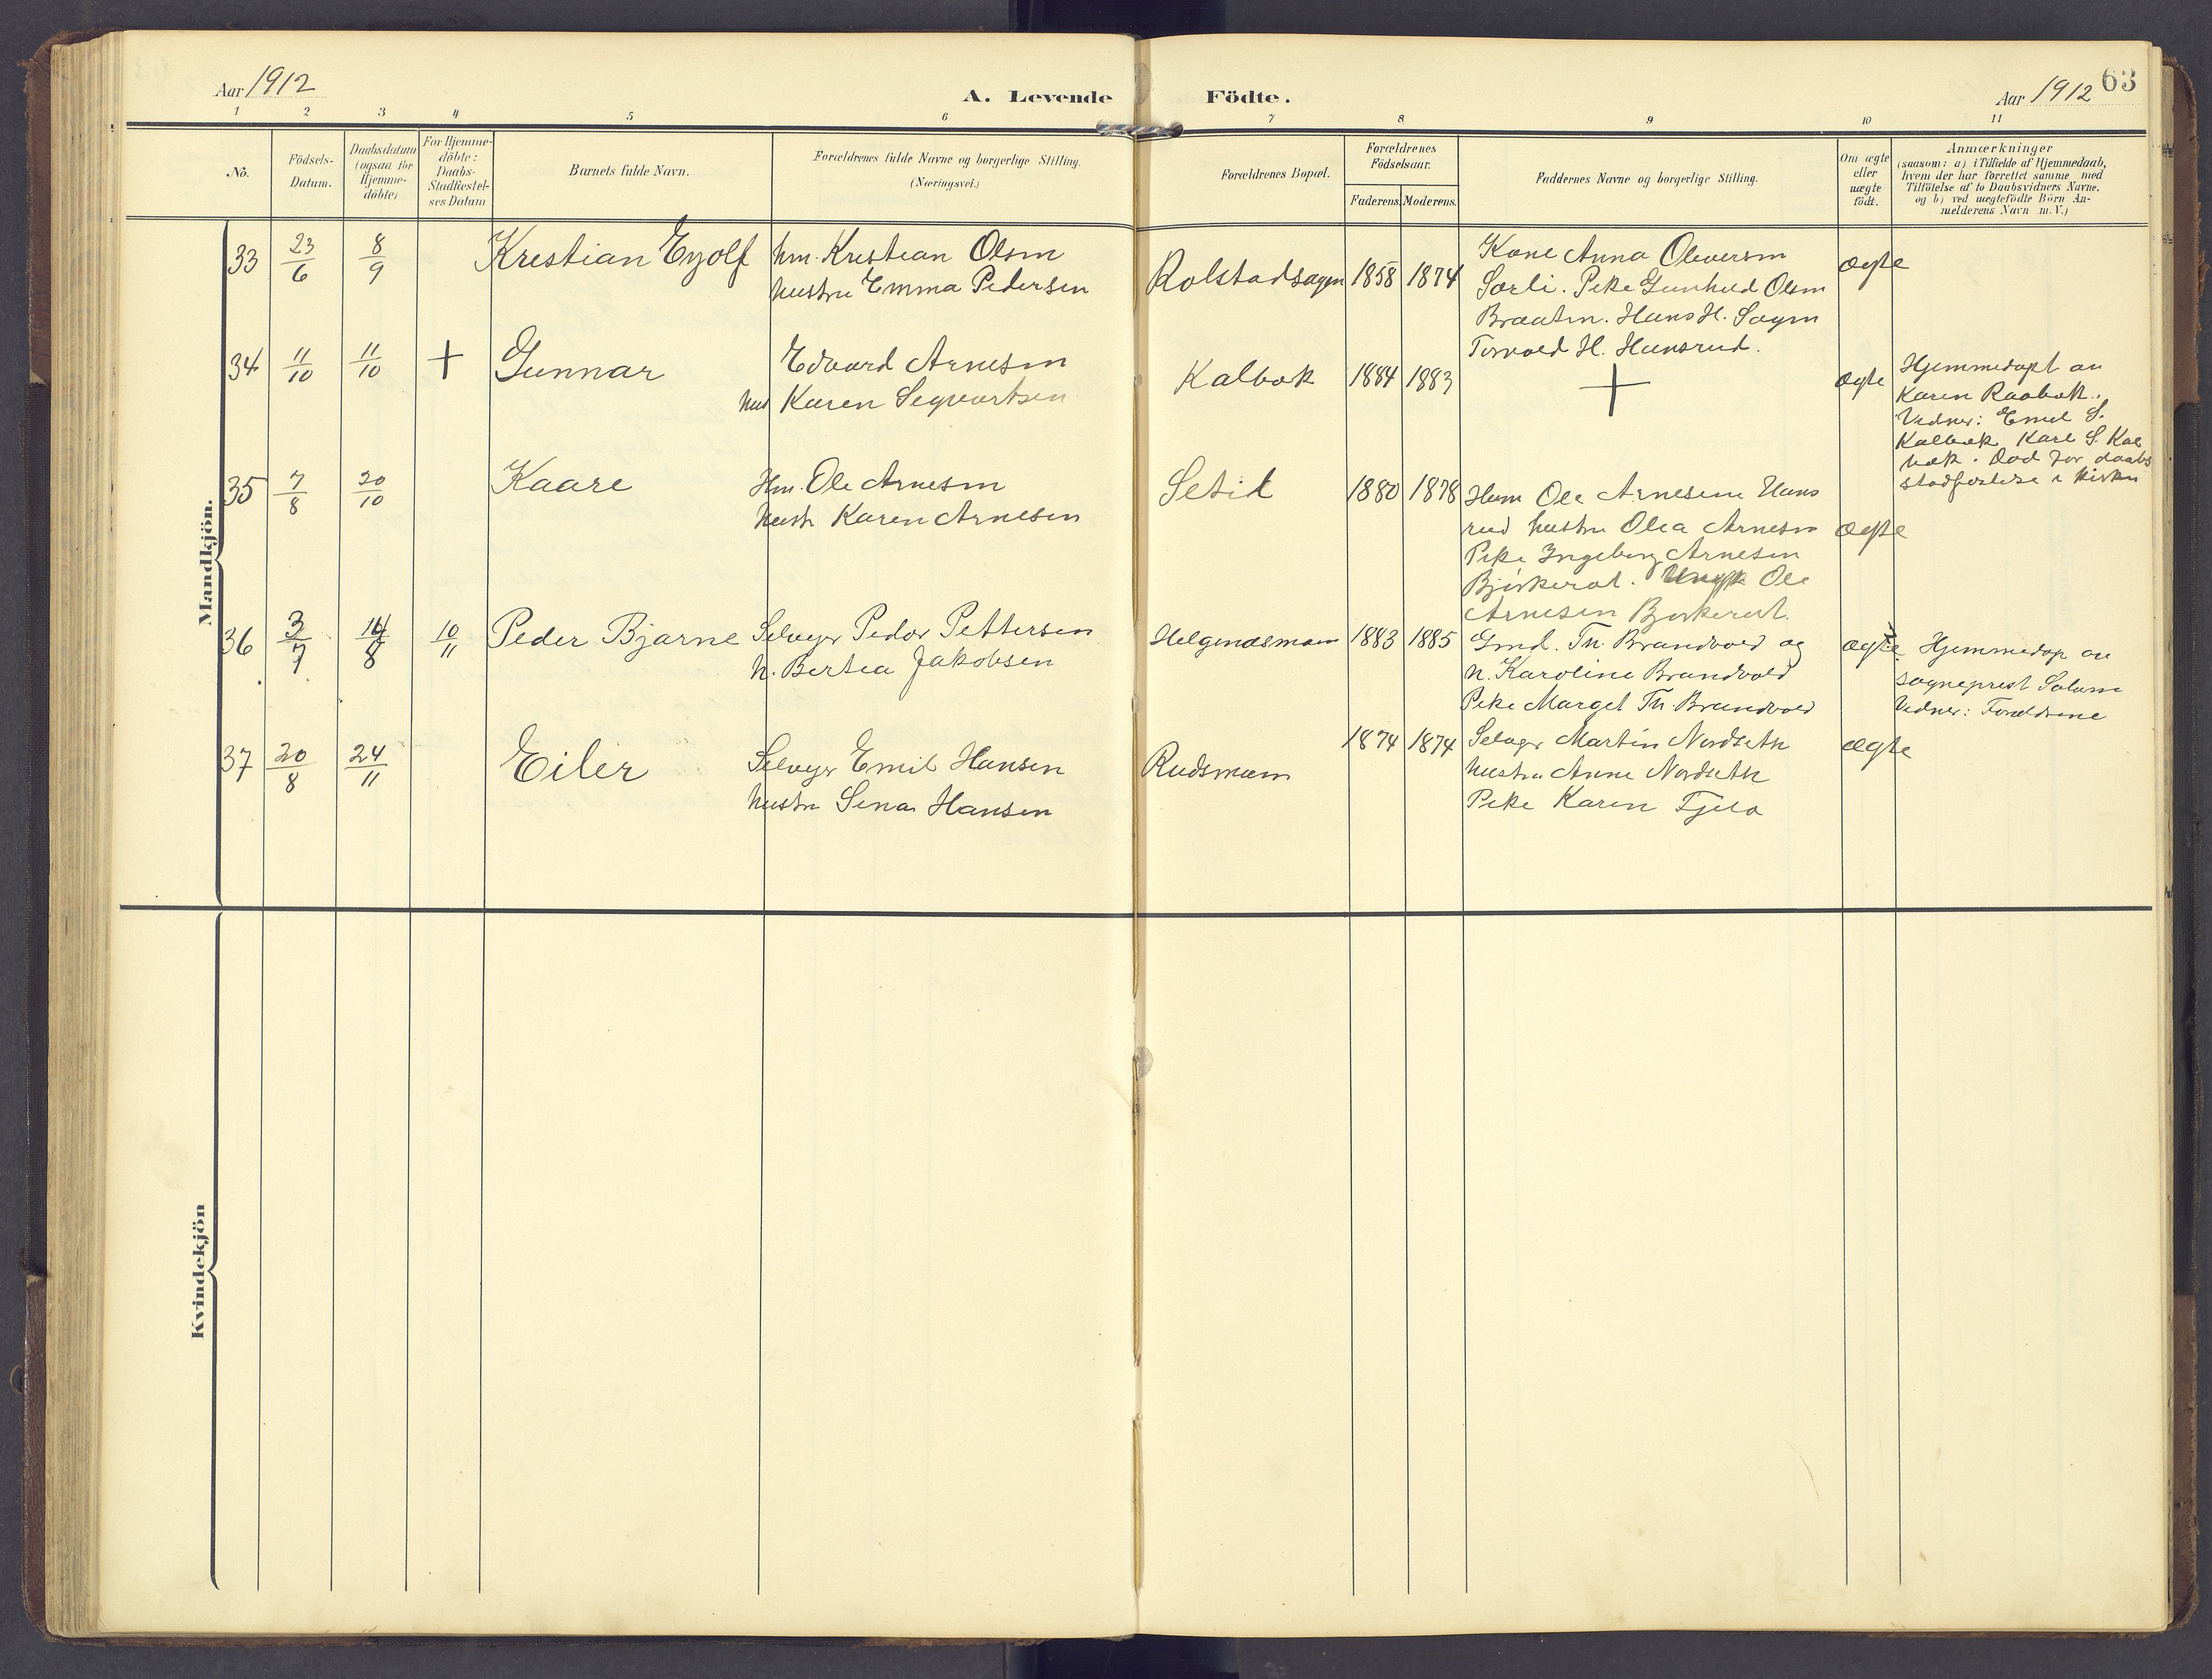 Aar 1912
A. Levende Födte.
Aar 1912 63
1 2 3 4 5 6 7 8 9 10 11
No.
Födsels-
Datum.
Daabsdatum
(ogsaa for
Hjemme-
döbte)
For Hjemme-
döbte:
Daabs-
Stadfæstel-
ses Datum
Barnets fulde Navn.
Forældrenes fulde Navne og borgerlige Stilling.
(Næringsvei.)
Forældrenes Bopæl.
Forældrenes
Födselsaar.
Faderens. Moderens.
Faddernes Navne og borgerlige Stilling.
Om ægte
eller
uægte
födt.
Anmærkninger
(saasom: a) i Tilfælde af Hjemmedaab,
hvem der har forrettet samme med
Tilföielse af to Daabsvidners Navne,
og b) ved uægtefödte Börn An-
melderens Navn m. V.)
Mandkjön.
33 23/6 8/9 Krestian Eyolf
hm. Krestian Olsen
hustru Emma Pedersen
Rolstadsagen 1858 1874
Kone Anna Oleversen
Sørli. Pike Gunhild Olsen
Braaten. Hans H. Sagen
Torvald H. Hansrud.
ægte
34 11/10 11/10 + Gunnar
Edvard Arnesen
hus Karen Segvartsen
Kalbak 1884 1883
+
ægte
Hjemmedøpt av
Karen Raabak.
Vedner: Emil S.
Kalbak, Karl S. Kal
bak. Død før daabs
stadfæstelse i kirken
35 7/8 20/10 Kaare
Hm. Ole Arnesen
hustr Karen Arnesen
Setil 1880 1878
Husm Ole Arnesen Hans
rud hustru Olea Arnesen
Pike Ingeborg Arnesen
Bjørkerud. Ole
Arnesen Bjørkerud.
ægte
36 3/7 14/8 10/11 Peder Bjarne
Selveyr Peder Pettersen
h. Bertea Jakobsen
Helgenæsmoen 1883 1885
Grnd. Th. Brandvold og
h. Karoline Brandvold
Pike Marget Th. Brandvold
ægte
Hjemmedøp av
sogneprest Solum
Vedner: Forældrene
37 20/8 24/11 Eiler
Selveyr Emil Hansen
hustru Sena Hansen
Rudsmoen 1874 1874
Selveyr Martin Nordseth
hustru Anne Nordseth
Pike Karen Fjeld
ægte
Kvindekjön